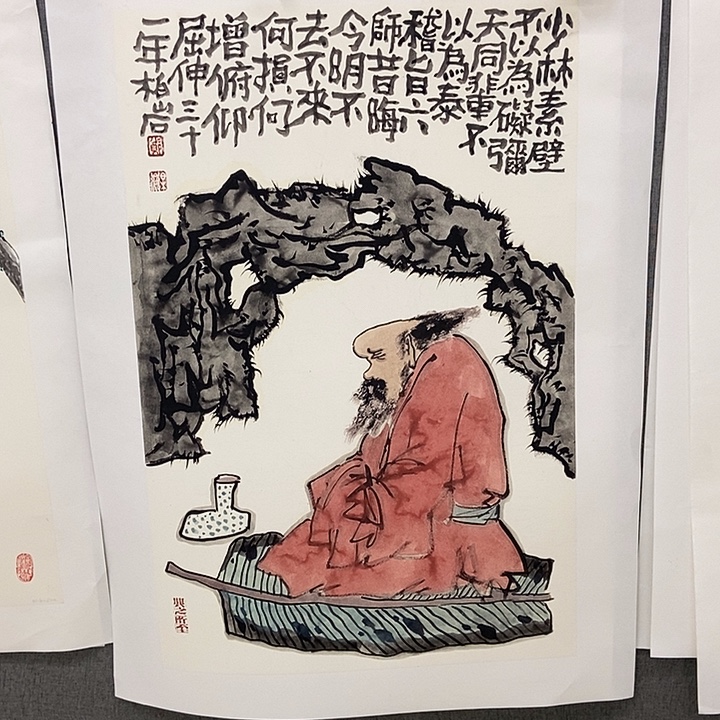 少林素壁
不以為礙彌
天同輩不
以為泰
稽首六
師昔晦
今明不
去不來
何損何
增俯仰
屈伸三十
二年柏岩
興之所至